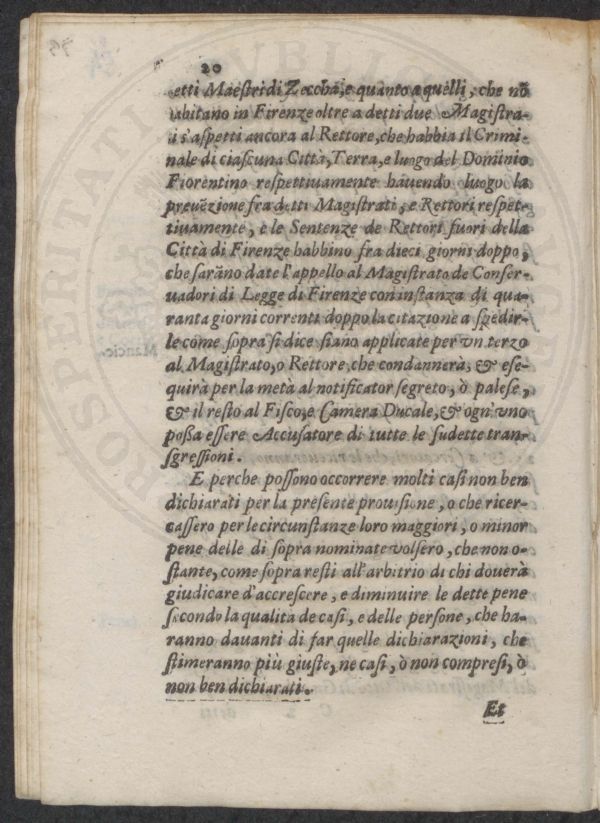 20
etti Maestri di Zeccha, e quanto a quelli, che nō
habitano in Firenze oltre a detti due Magistra-
ti s'aspetti ancora al Rettore, che habbia il Crimi-
nale di ciascuna Città, Terra, e luogo del Dominio
Fiorentino respettiuamente hauendo luogo la
preuēzione fra detti Magistrati, e Rettori respet-
tiuamente, e le Sentenze de Rettori fuori della
Città di Firenze habbino fra dieci giorni doppo,
che sarāno date l'appello al Magistrato de Conser-
uadori di Legge di Firenze con instanza di qua-
ranta giorni correnti doppo la citazione a spedir-
le come sopra si dice siano applicate per vn terzo
al Magistrato, o Rettore che condannerà, & ese-
quirà per la metà al notificator segreto, ò palese,
& il resto al Fisco, e Camera Ducale, & ogn'vno
possa essere Accusatore di tutte le sudette tran-
sgressioni.
E perche possono occorrere molti casi non ben
dichiarati per la presente prouisione, o che ricer-
cassero per le circunstanze loro maggiori, o minor
pene delle di sopra nominate volsero, che non o-
stante, come sopra resti all'arbitrio di chi douerà
giudicare d'accrescere, e diminuire le dette pene
secondo la qualita de casi, e delle persone, che ha-
ranno dauanti di far quelle dichiarazioni, che
stimeranno più giuste, ne casi, ò non compresi, ò
non ben dichiarati.
Et